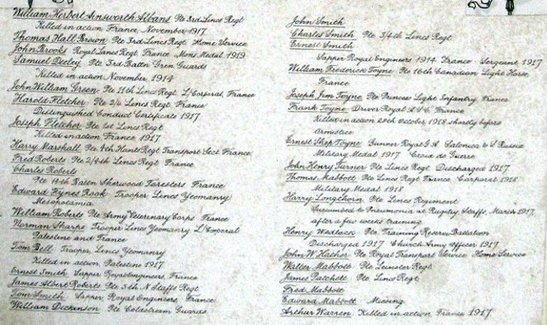 William Herbert Ainsworth Albans Pte 3rd Lincs Regt
Killed in action France, November 1917
Thomas Hall Brown Pte 3rd Lincs Regt Home Service
John Brooks Royal Lancs Regt France Mons Medal 1919
Samuel Deeley Pte 3rd Batt Gren Guards
Killed in action November, 1914
John William Green Pte 11th Lincs Regt L/Corporal, France
Harold Fletcher Pte 2/4 Lincs Regt France
Distinguished Conduct Certificate 1917
Joseph Fletcher Pte 1st Lincs Regt
Killed in action France 1917
Harry Marshall Pte 9th Hants Regt Transport Sect France
Fred Roberts Pte 2/4th Lincs Regt France
Charles Roberts
Pte 14th Batt Sherwood Foresters France
Edward Hynes Rook Trooper Lincs Yeomanry
Mesopotamia
William Roberts Pte Army Veterinary Corps France
Norman Sharpe Trooper Lincs Yeomanry L/Corporal
Palestine and France
Tom Bell Trooper Lincs Yeomanry
Killed in action Palestine 1917
Ernest Smith Sapper Royal Engineers France
James Albert Roberts Pte 5th N Staffs Regt
Tom Smith Sapper Royal Engineers, France
William Dickinson Pte Coldstream Guards
John Smith
Charles Smith Pte 3/4th Lincs Regt
Ernest Smith
Sapper Royal Engineers 1914 France Sergeant 1917
William Frederick Toyne Pte 16th Canadian Light Horse
France
Joseph Jim Toyne Pte Princess Light Infantry France
Frank Toyne Driver Royal France
Killed in action October, 1918, shortly before
Armistice
Ernest Shep Toyne Gunner Royal G A Salonica & Russia
Military Medal 1917 Croix de Guerre
John Henry Turner Pte Lincs Regt Discharged 1917
Thomas Mabbott Pte Lincs Regt France Corporal 1918
Military Medal 1918
Harry Longthorn Pte Lincs Regiment
Succumbed to Pneumonia at Rugeley, Staffs, March 1917,
after a few weeks training
Henry Wedlock Pte Training Reserve Battalion
Discharged 1917 Church Army Officer 1917
John W Hather Pte Royal Transport Service Home Service
Walter Mabbott Pte Leinster Regt
James Patchett Pte Lincs Regt
Fred Mabbott
Edward Mabbott Missing
Arthur Warren Killed in action France 1917